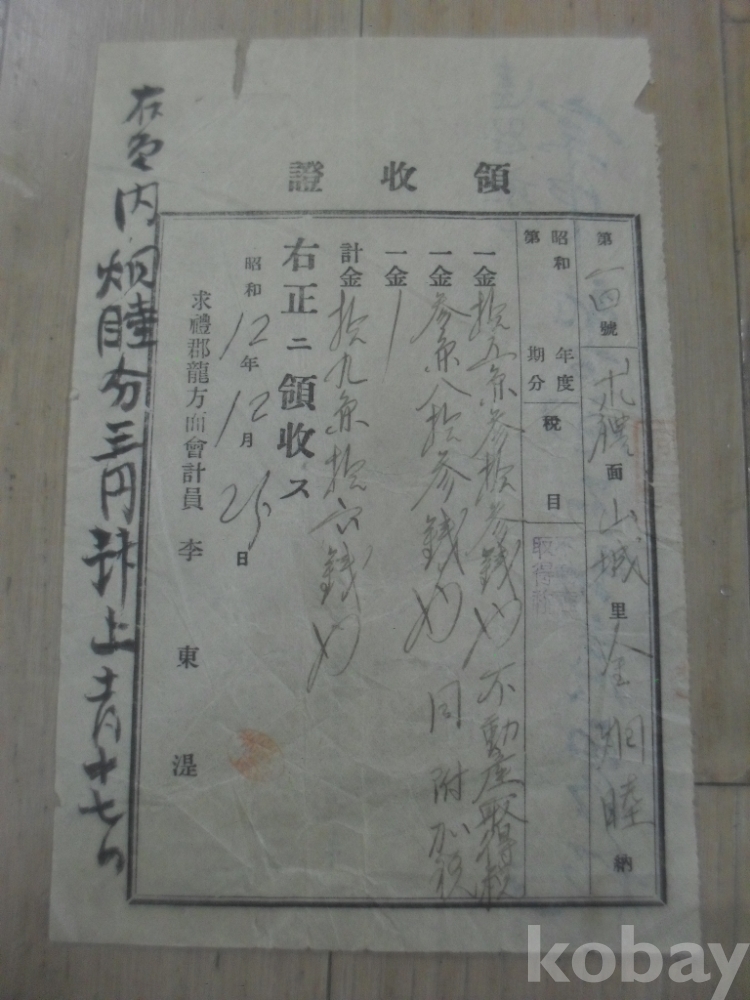 領收證
第一四號 求禮面山城里金炯睦納
昭和 年度 稅目 取得稅
第 期分
一金拾五円参拾参錢也 不動産取得税
一金参円八拾参錢也 同附加税
一金
計金拾九円拾六錢也
右正ニ領收ス
昭和12年12月25日
求禮郡龍方面會計員 李東湜
内炯睦分三円 上 十七日
kobay